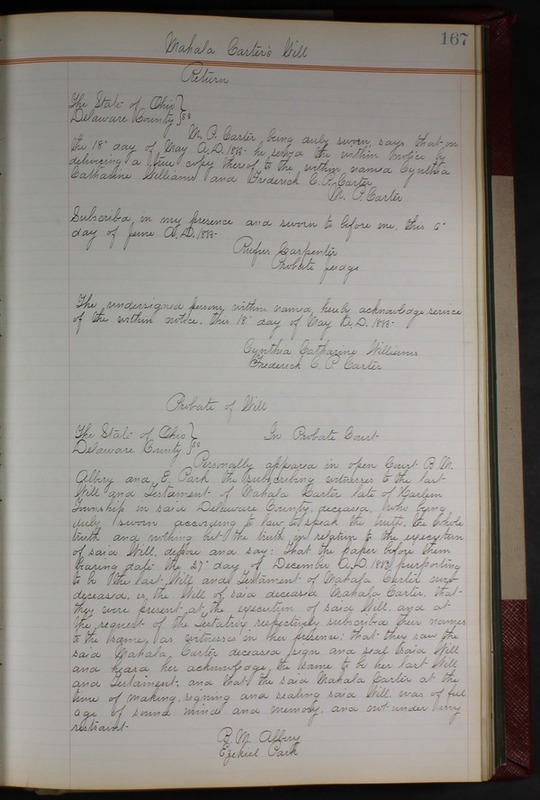 167
Mahala Carter's Will
Return
The State of Ohio }
Delaware County } ss
W. P. Carter, being duly sworn, says that on
the 18" day of May A.D. 1883 he served the within notice by
delivering a true copy thereof to the within named Cynthia
Catharine Williams and Frederick C. P. Carter
W. P. Carter
Subscribed in my presence and sworn to before me, this 5"
day of June A.D. 1883-
Rufus Carpenter
Probate Judge
The undersigned persons within named, hereby acknowledge service
of the within notice. this 18" day of May A.D. 1883-
Cynthia Catharine Williams
Frederick C. P. Carter
Probate of Will
The State of Ohio }
Delaware County } ss In Probate Court
Personally appeared in open Court B. M.
Albery and E. Park the subscribing witnesses to the last
Will and Testament of Mahala Carter late of Harlem
Township in said Delaware County, deceased, who being
duly sworn according to law to speak the truth, the whole
truth and nothing but the truth in relation to the execution
of said Will, depose and say: That the paper before them
bearing date the 27" day of December A.D. purporting
to be the last Will and Testament of Mahala Carter now
deceased, is the Will of said deceased Mahala Carter, that
they were present at the execution of said Will, and at
the request of the Testatrix respectively subscribed their names
to the same, as witnesses in her presence: that they saw the
said Mahala Carter deceased sign and seal said Will
and heard her acknowledge the same to be her last Will
and Testament; and that the said Mahala Carter at the
time of making, signing and sealing said Will was of full
age of sound mind and memory, and not under any
restraint-
B. M. Albery
Ezekiel Park